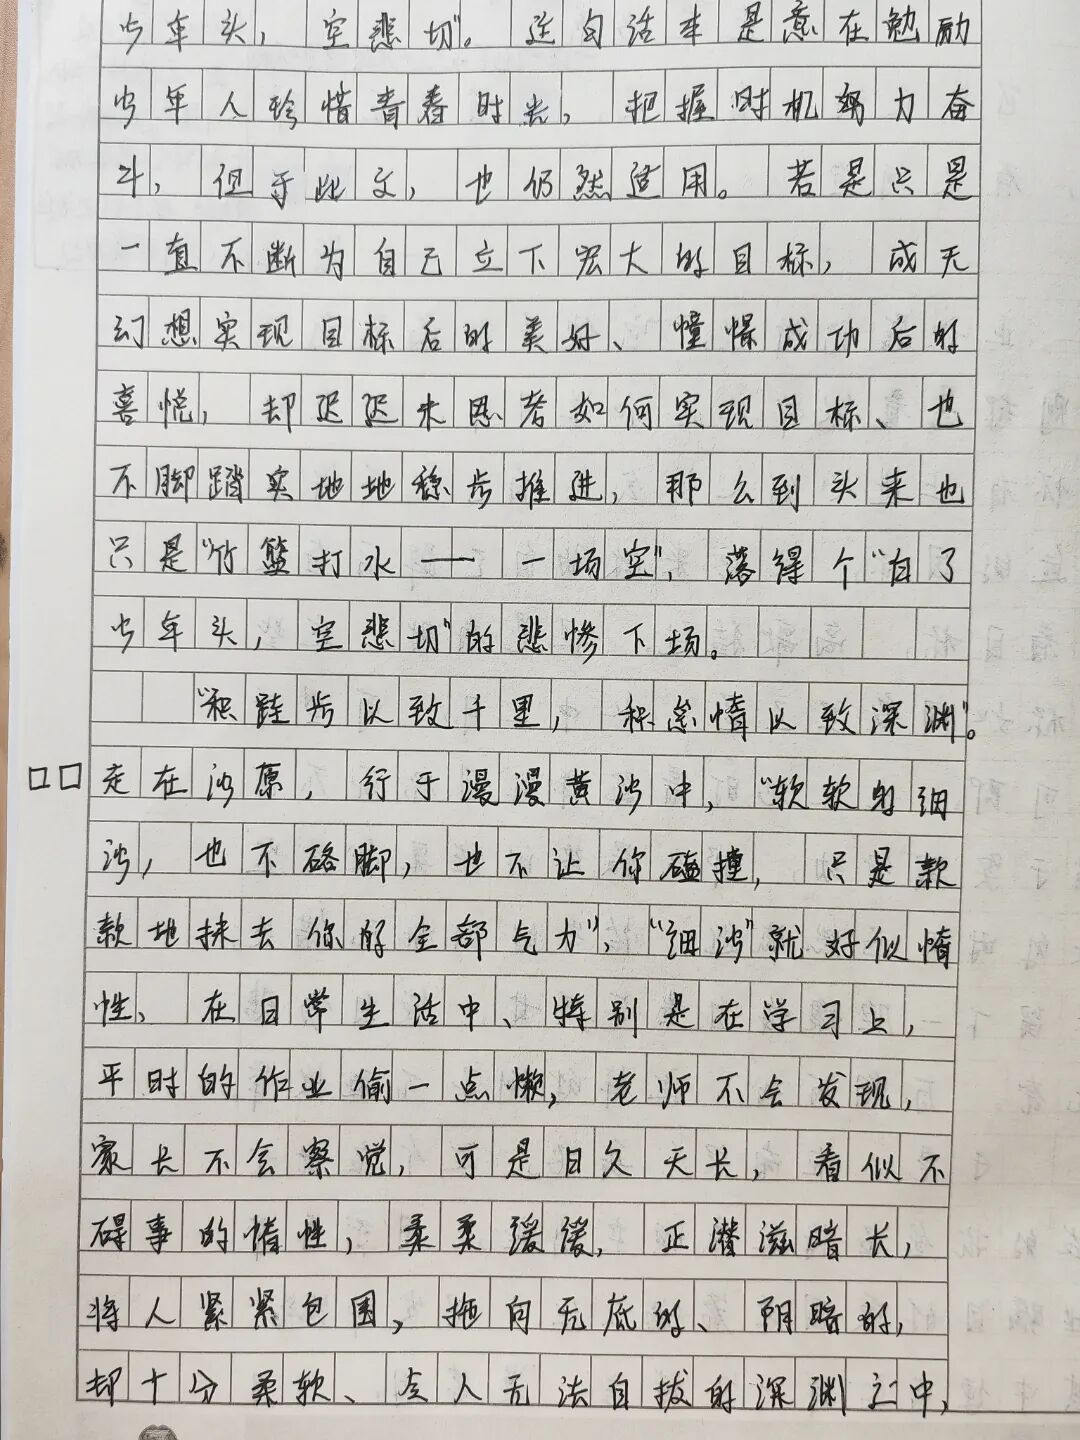 少年头，空悲切”。这句话本是意在勉励
少年人珍惜青春时光，把握时机努力奋
斗，但于此文，也仍然适用。若是只是
一直不断为自己立下宏大的目标，成天
幻想实现目标后的美好、憧憬成功后的
喜悦，却迟迟未思考如何实现目标、也
不脚踏实地地稳步推进，那么到头来也
只是“竹篮打水——一场空”，落得个“白了
少年头，空悲切”的悲惨下场。
“积跬步以致千里，积怠惰以致深渊”。
□□走在沙原，行于漫漫黄沙中，“软软的细
沙，也不硌脚，也不让你磕撞，只是款
款地抹去你的全部气力”，“细沙”就好似惰
性、在日常生活中、特别是在学习上，
平时的作业偷一点懒，老师不会发现，
家长不会察觉，可是日久天长，看似不
碍事的惰性，柔柔缓缓，正潜滋暗长，
将人紧紧包围，拖向无底的、阴暗的，
却十分柔软、令人无法自拔的深渊之中，